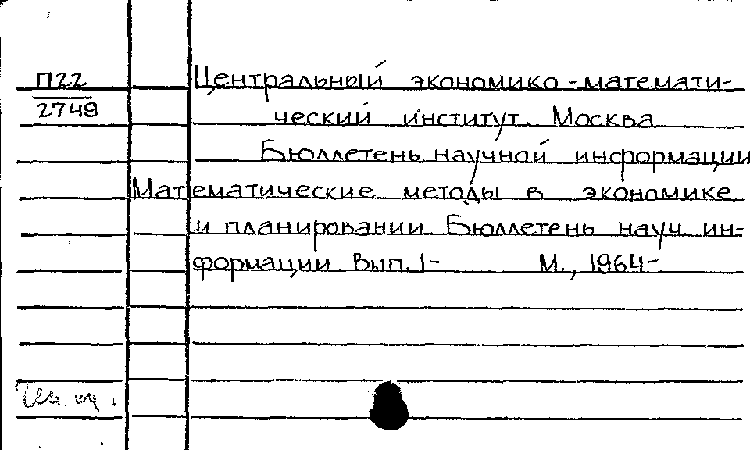 П22
2749
Центральный экономико-математи-
ческий институт. Москва
Бюллетень научной информации
Математические методы в экономике
и планировании. Бюллетень науч. ин-
формации. Вып. 1- М., 1964-